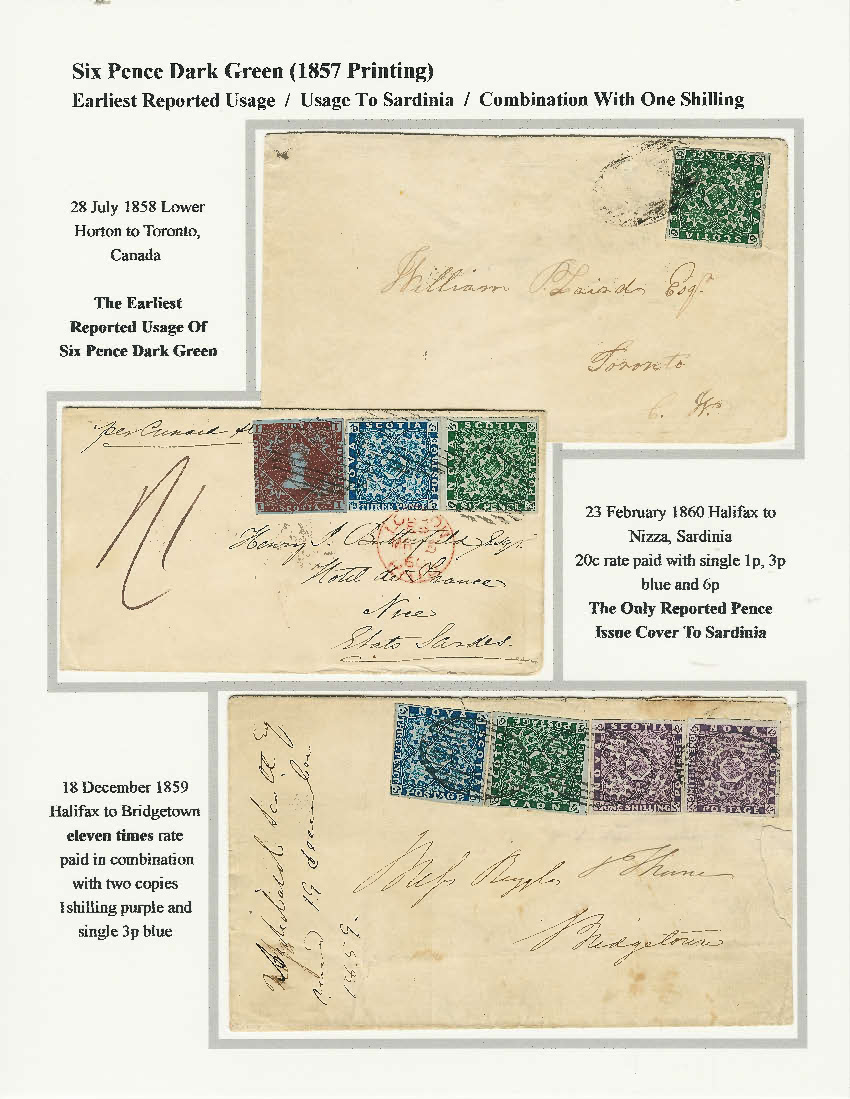 Six Pence Dark Green (1857 Printing)
Earliest Reported Usage / Usage To Sardinia / Combination With One Shilling
28 July 1858 Lower
Horton to Toronto,
Canada
The Earliest
Reported Usage Of
Six Pence Dark Green
SCOTIA
William P. Laird Esqr.
Toronto
C. W.
per Cunard
SCOTIA
NOVA
SCOTIA
SCOTIA
LONDON
Henry A Butterfield Esqr
Hotel de France
Nice
Etats Sardes.
23 February 1860 Halifax to
Nizza, Sardinia
20c rate paid with single 1p, 3p
blue and 6p
The Only Reported Pence
Issue Cover To Sardinia
18 December 1859
Halifax to Bridgetown
eleven times rate
paid in combination
with two copies
1shilling purple and
single 3p blue
NOVA
SCOTIA
POSTAGE
NOVA
SCOTIA
NOVA
SHILLING
NOVA
POSTAGE
1859
Bridgetown